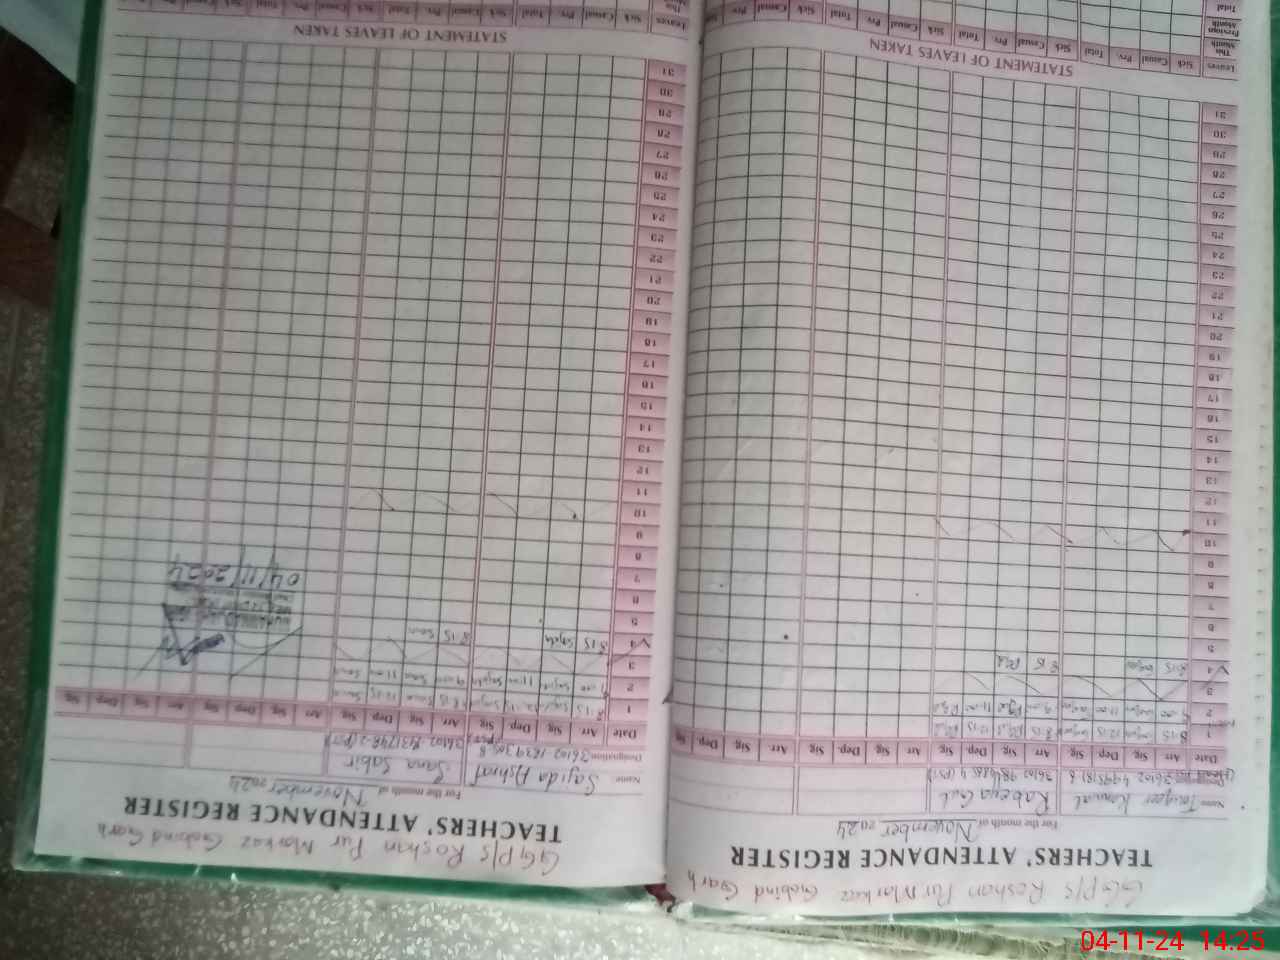 GGP/S Roshan Pur Markaz Gobind Garh
TEACHERS' ATTENDANCE REGISTER
For the month of November 2024
Name Tanzeer Kanwal Rabeya Gul
Date Arr Sig Dep Sig Arr Sig Dep Sig Arr Sig Dep Sig Arr Sig Dep Sig
1 8:15 12:15 8:15 12:15
2 9:00 11:00 9:00 11:00
3
4 8:15 8:15
5
6
7
8
9
10
11
12
13
14
15
16
17
18
19
20
21
22
23
24
25
26
27
28
29
30
31
STATEMENT OF LEAVES TAKEN
Leaves Sick Casual Prv Total Sick Casual Prv Total Sick Casual Prv Total Sick Casual Prv
This Month
Previous Month
Total
GGP/S Roshan Pur Markaz Gobind Garh
TEACHERS' ATTENDANCE REGISTER
For the month of November 2024
Name Sajida Ashraf Sana Sabir
Designation
Date Arr Sig Dep Sig Arr Sig Dep Sig Arr Sig Dep Sig Arr Sig Dep Sig
1 8:15 12:15 8:15 12:15 Sana
2 9:00 11:00 9:00 11:00 Sana
3
4 8:15 Sajida 8:15 Sana
5
6
7
8
9
10
11
12
13
14
15
16
17
18
19
20
21
22
23
24
25
26
27
28
29
30
31
04/11/2024
STATEMENT OF LEAVES TAKEN
Leaves Sick Casual Prv Total Sick Casual Prv Total Sick Casual Prv Total Sick Casual Prv
04-11-24 14:25